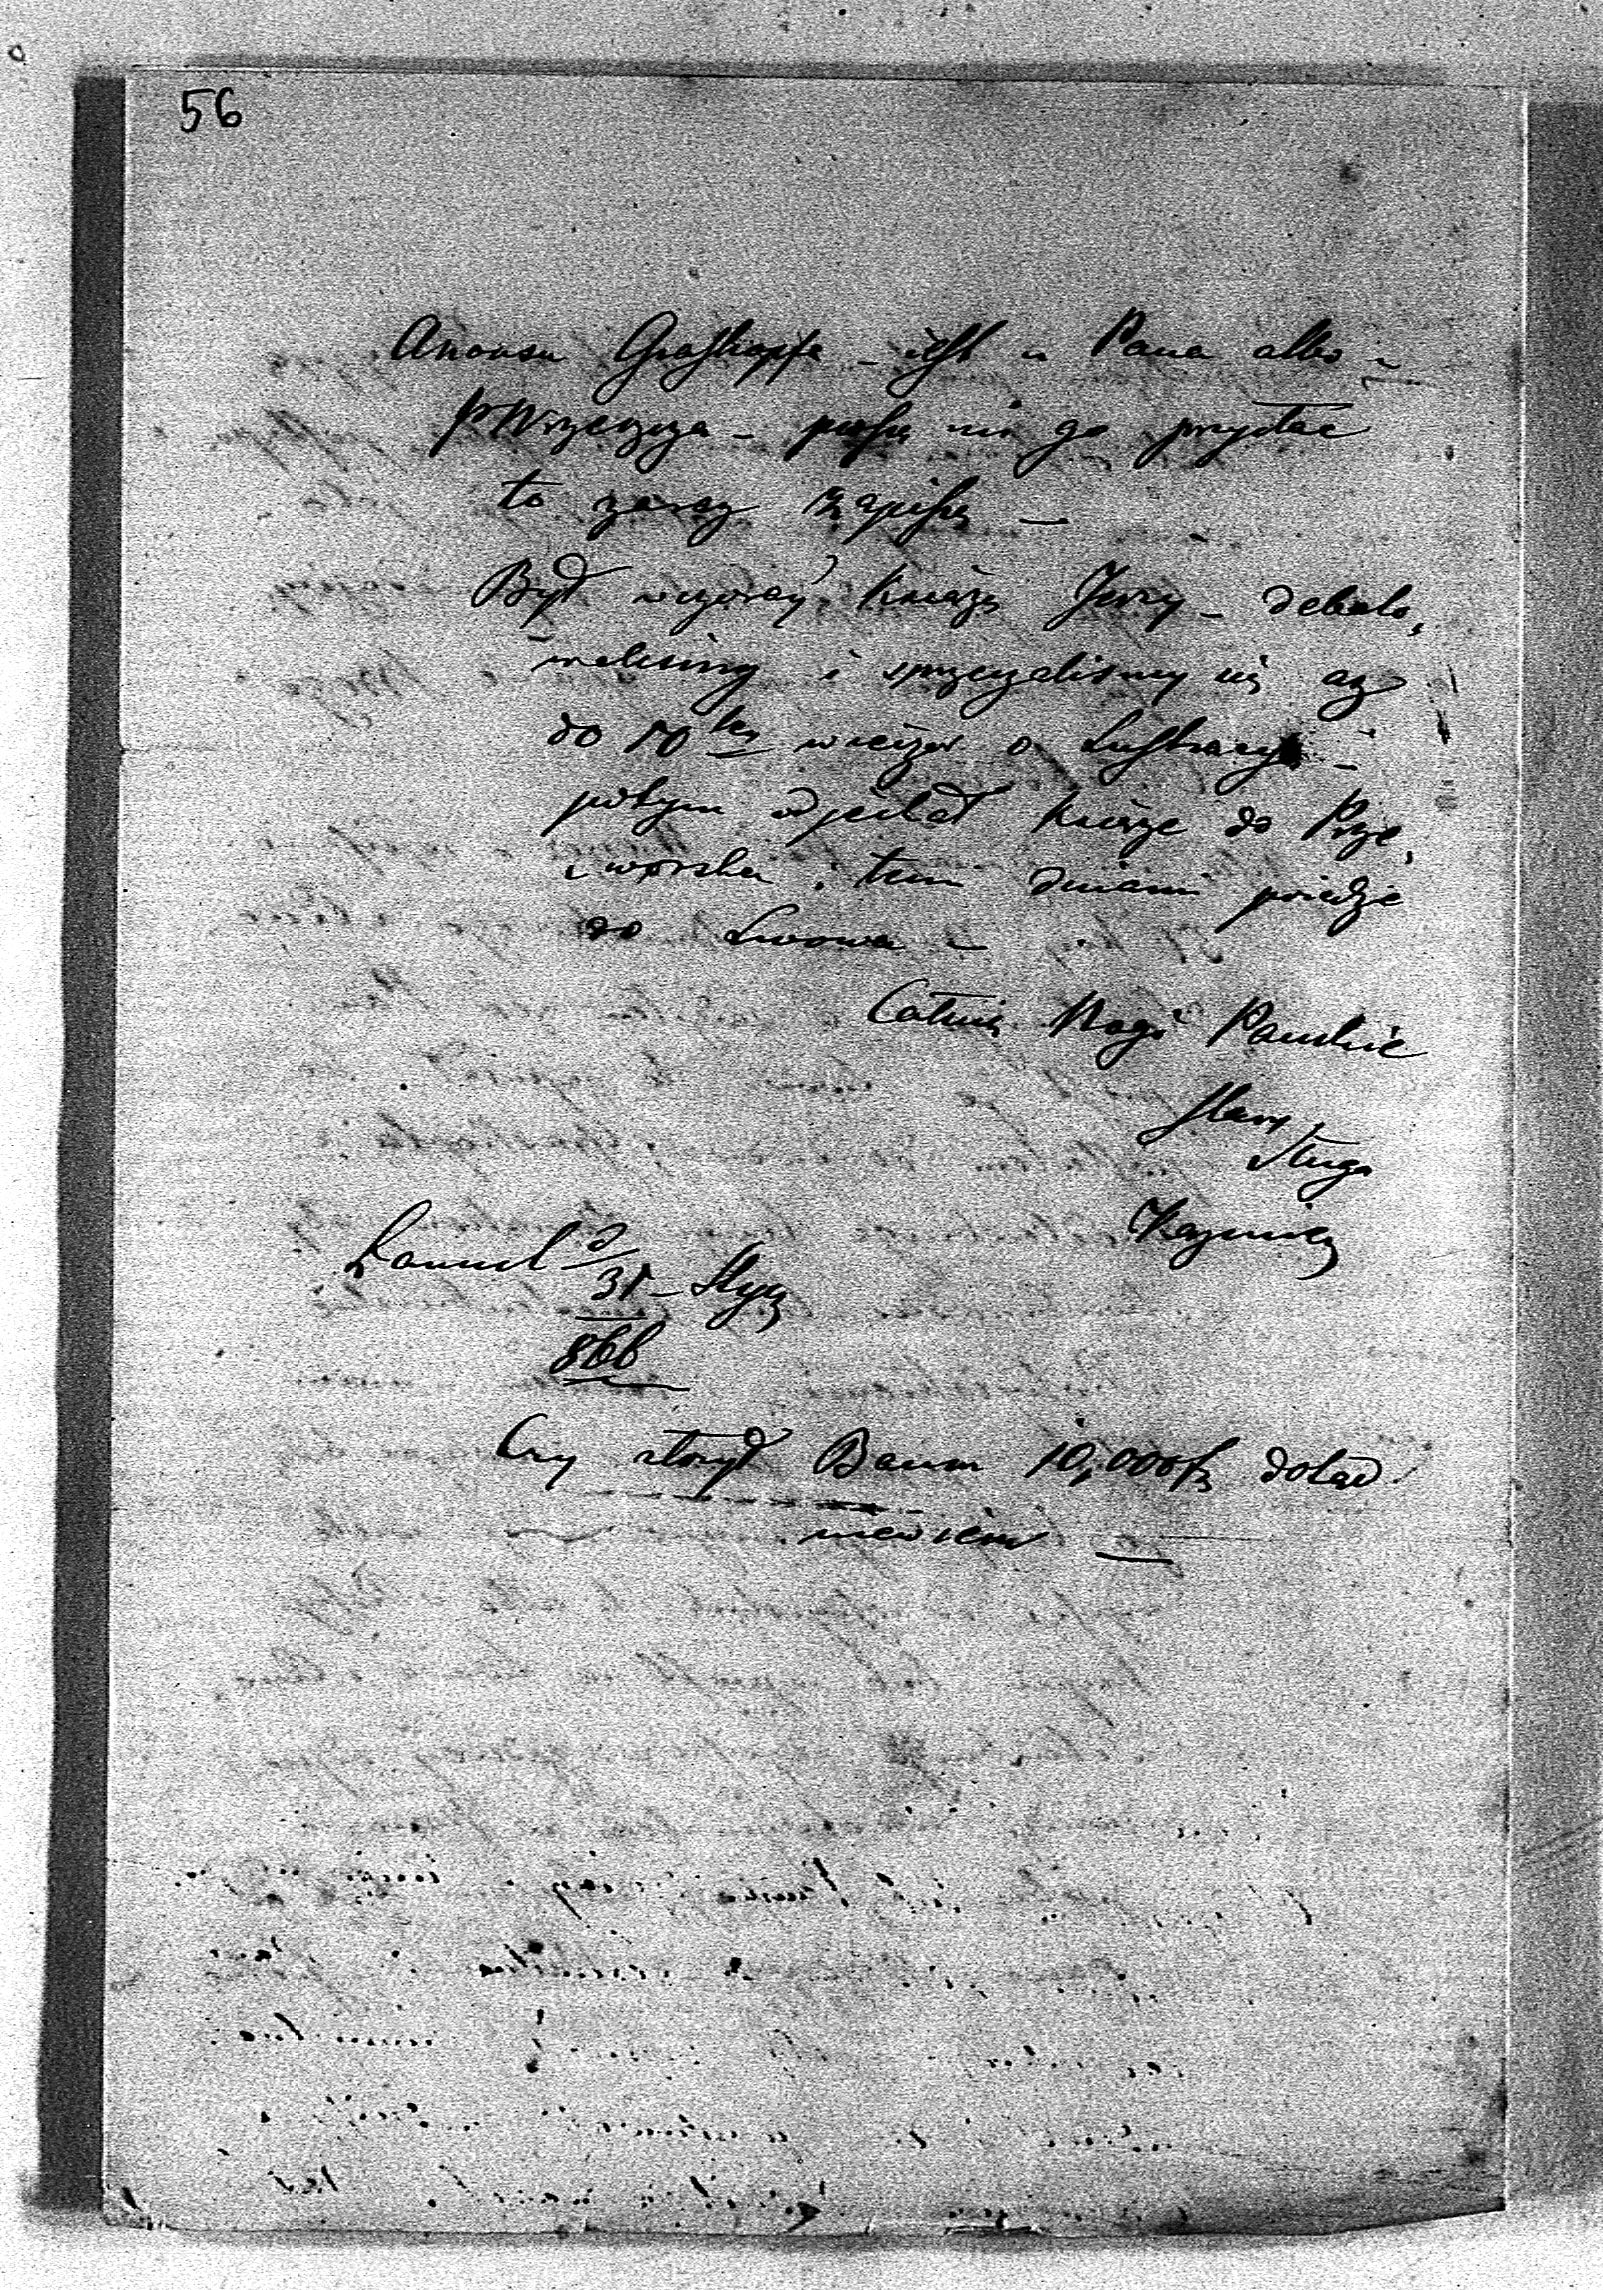 56
Anonsu Grafkopfa – jest u Pana albo u
P Wrzeszcza – proszę mi go przysłać
to zaraz zapiszę –
Był wczoraj Książę Jerzy – debato,
waliśmy i sprzeczaliśmy się aż
do 10 tej wieczór o Lustracyi –
potym odjechał Książe do Prze,
worska i temi dniami poiedzie
do Lwowa –
Całuię Nogi Pańskie
stary
sługa
Kazimierz
Łańcut d
31 – Stycz
866
Czy złożył Baum 10,000 fr dotąd
niewiem –